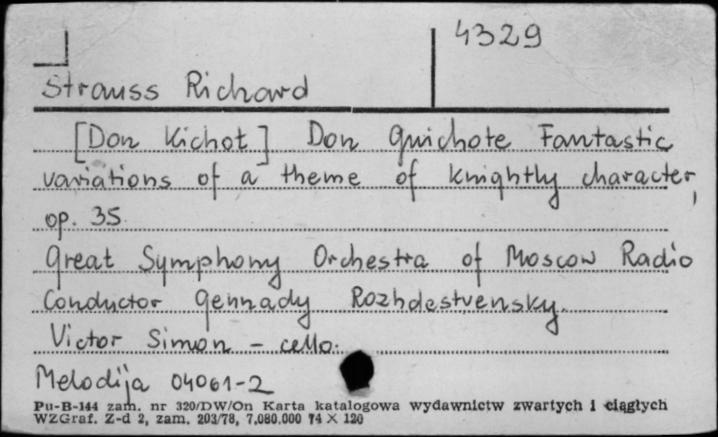 4329
Strauss Richard
[Don Kichot] Don Quichote Fantastic
variations of a theme of knightly character,
op. 35
Great Symphony Orchestra of Moscow Radio
Conductor Gennady Rozhdestvensky.
Victor Simon - cello.
Melodija 04061-2
Pu-B-144 zam. nr 320/DW/On Karta katalogowa wydawnictw zwartych i ciągłych
WZGraf. Z-d 2, zam. 203/78, 7.080.000 74 X 120